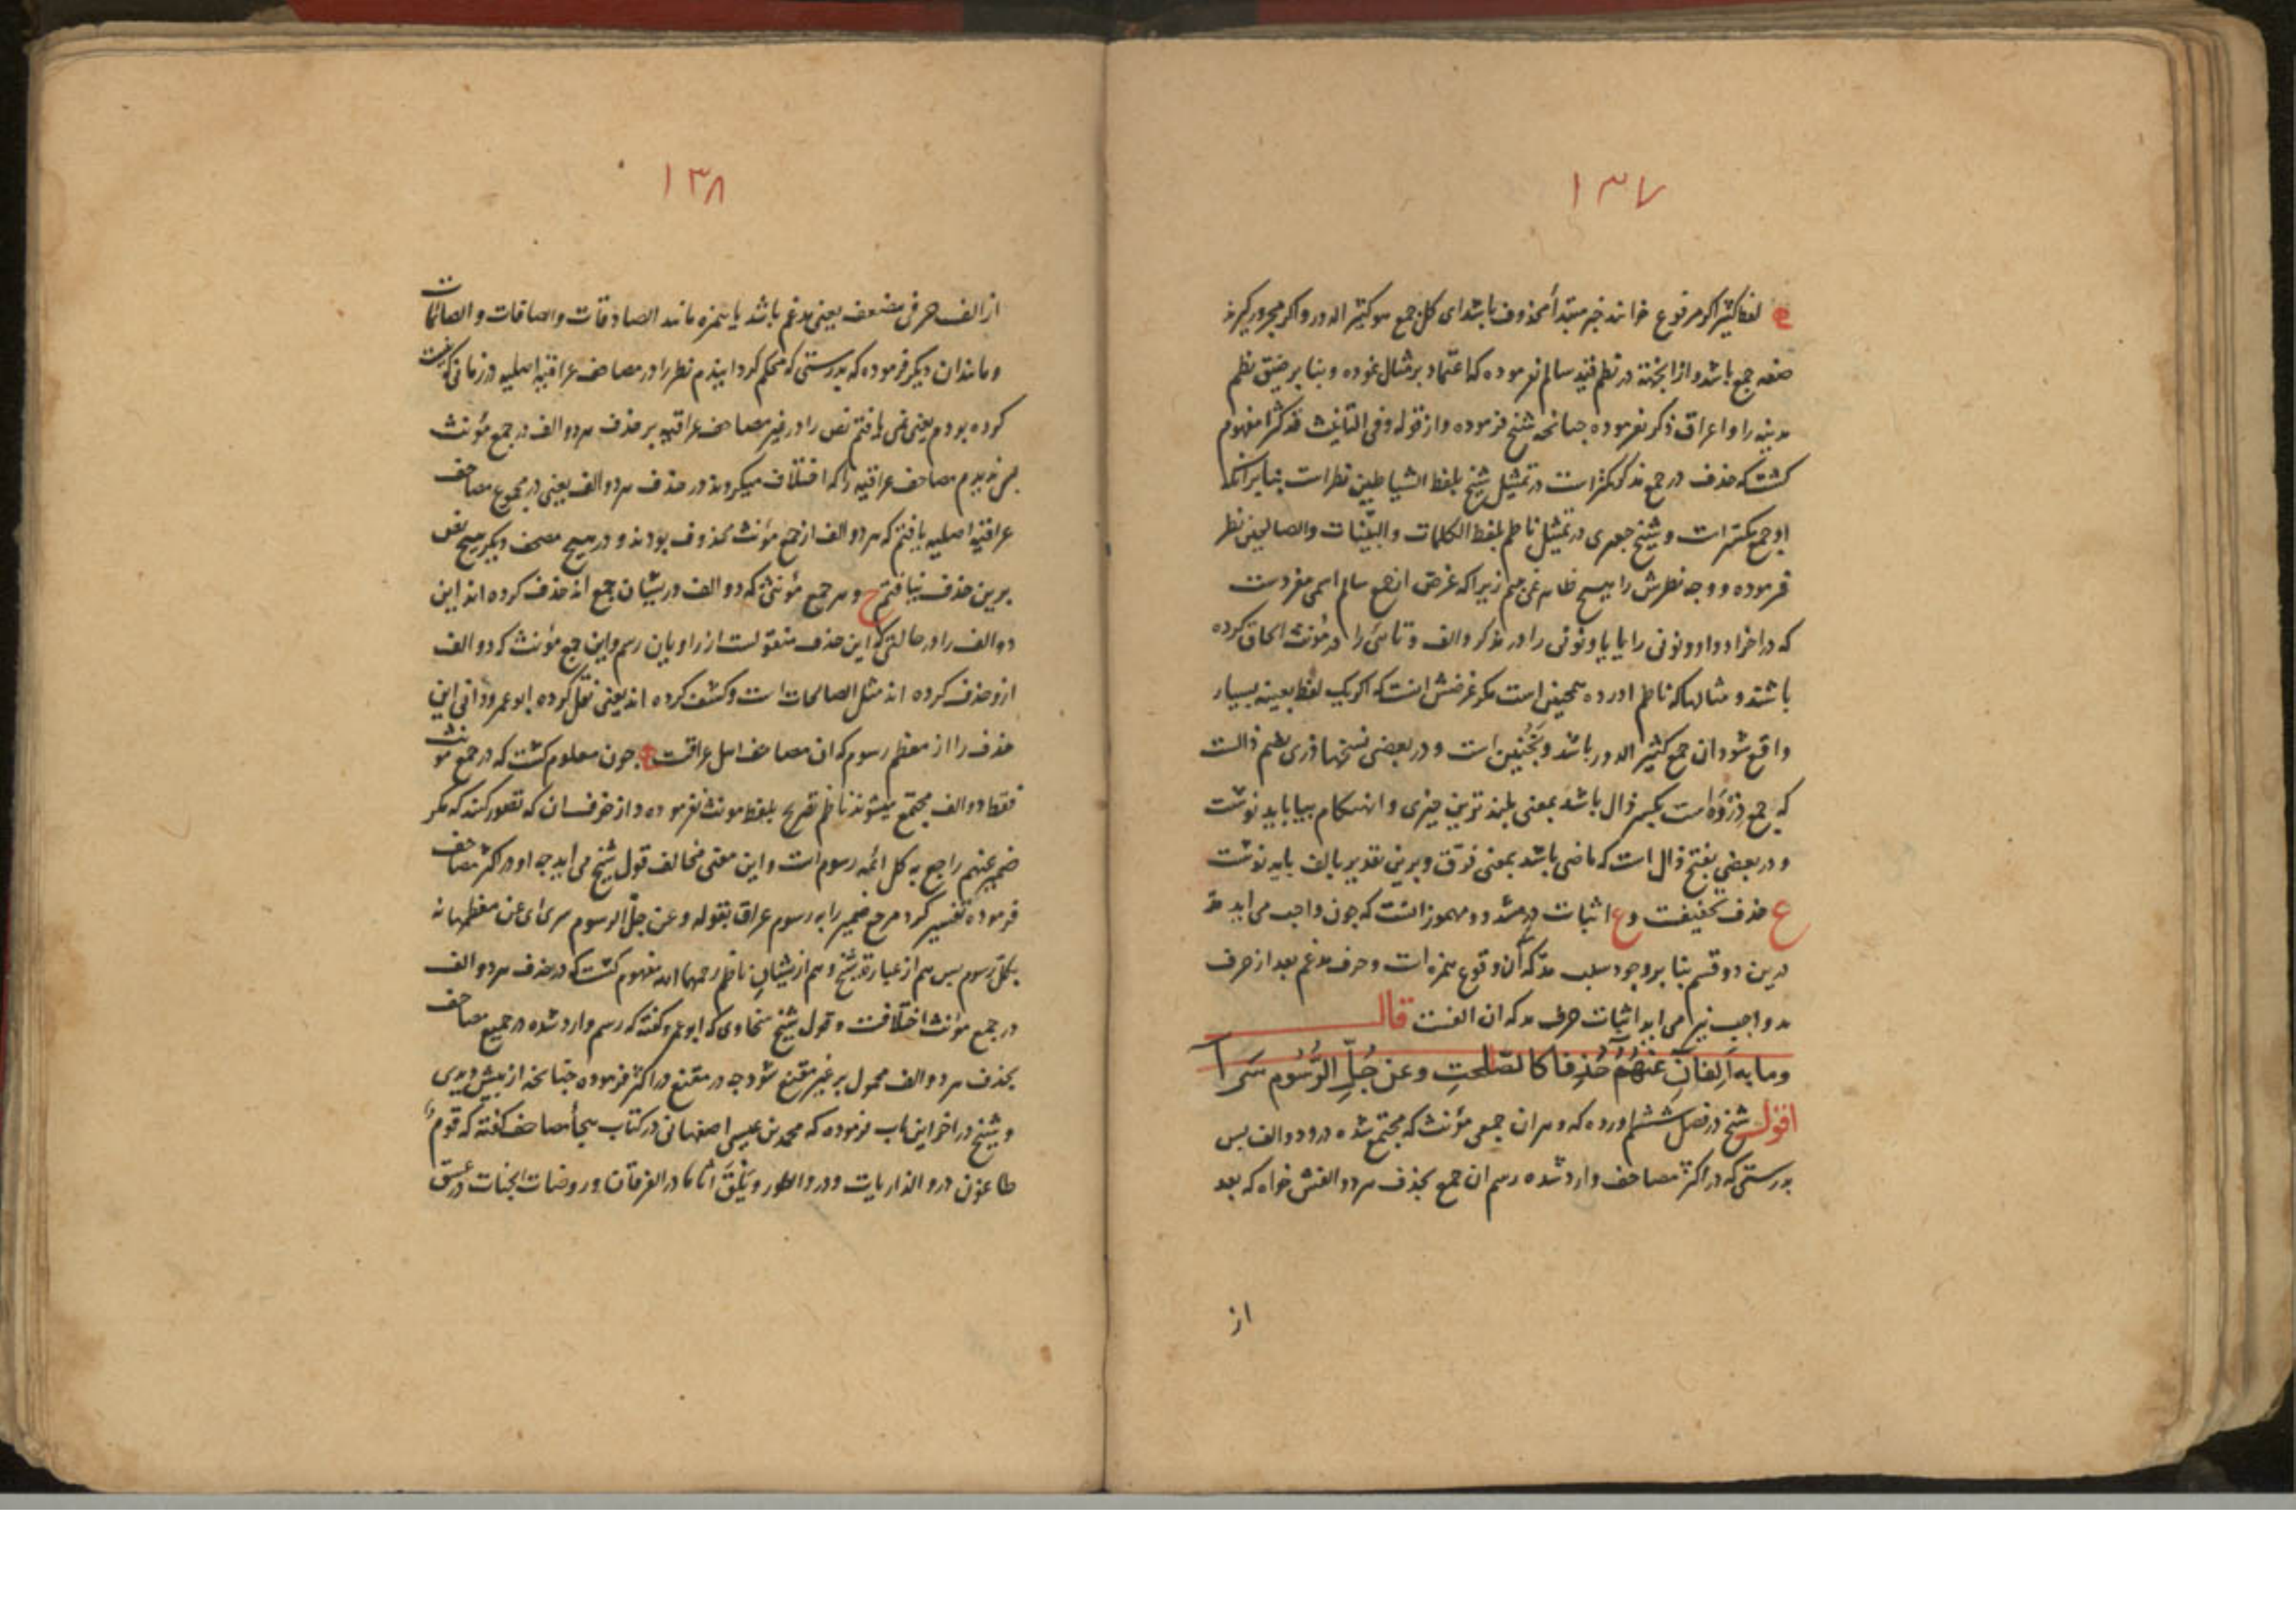 ١٣٧
لفظ کثیر اکر مرفوع خوانند خبر مبتدأ محذوف باشد ای کل جمع هو کثیر الدور و اکر مجرور کیرند
صفه جمع باشد و از اینجهة در نظم قید سالم نفرموده که اعتماد بر مثال نموده و بنا بر ضیق نظم
مدینه را و اعراق ذکر نفرموده جنانجه شیخ فرموده و از قوله وفی التانیث قد کثرا مفهوم
کشت که حذف در جمع مذکر مکثر است در تمثیل شیخ بلفظ الشیاطین نظر است بنا بر انکه
او جمع مکسر است و شیخ جعبری در تمثیل ناظم بلفظ الکلمات والبیّنات والصالحین نظر
فرموده و وجه نظرش را هیج ظاهر نمی بینم زیرا که غرض از جمع سالم اسمی مفردست
که در اخر او واو و نونی را یا یا و نونی را در مذکر و الف و تائی را در مؤنث الحاق کرده
باشند و مثالها که ناظم اورده همجنین است مکر غرضش انست که اکر یک لفظ بعینه بسیار
واقع شود ان جمع کثیر الدور باشد و نجنین است و در بعضی نسخها ذری بضم ذالست
که جمع ذروه است بکسر ذال باشد بمعنی بلند ترین جیزی و انهنکام بیا باید نوشت
و در بعضی بفتح ذال است که ماضی باشد بمعنی فرّق و برین تقدیر بالف باید نوشت
ع حذف تخفیفت و ع اثبات در مشدد و مهموز انست که جون واجب می اید مد
درین دو قسم بنا بر وجود سبب مد که آن وقوع همزه است و حرف مدغم بعد از حرف
مد واجب نیز می اید اثبات حرف مد که ان الفست قال
وما به اَلِفانِ عَنهُمُ حُذِفا کالصّلحتِ وعن جُلِّ الرُّسُومِ سَرَا
اقول شیخ در فصل ششم اورده که و هر ان جمعی مؤنث که مجتمع شده درو دو الف بس
بدرستی که در اکثر مصاحف وارد شده رسم ان جمع بحذف هر دو الفش خواه که بعد
از
١٣٨
از الف حرفی مضعف یعنی مدغم باشد یا همزه مانند الصادقات والصافات والصائمات
و مانند ان دیکر فرموده که بدرستی که محکم کردانیدم نظر را در مصاحف عراقیه اصلیه در زمانی که نیافت
کرده بودم یعنی نمی یافتم نص را در غیر مصاحف عراقیه بر حذف هر دو الف در جمع مؤنث
بس ندیدم مصاحف عراقیه را که اختلاف میکردند در حذف هر دو الف یعنی در مجموع مصاحف
عراقیه اصلیه یافتم که هر دو الف از جمع مؤنث محذوف بودند و در هیج مصحف دیکر هیج نص
برین حذف نیافتم ح و هر جمع مؤنثی که دو الف در یشان جمع اند حذف کرده اند این
دو الف را در حالتی که این حذف منقولست از راویان رسم و این جمع مؤنث که دو الف
ازو حذف کرده اند مثل الصالحات است و کشف کرده اند یعنی نقل کرده ابو عمرو دانی این
حذف را از معظم رسوم که ان مصاحف اهل عراقست جون معلوم کشت که در جمع مؤنث
فقط دو الف مجتمع میشوند ناظم تصریح بلفظ مونث نفرموده و از خوف ان که تصور کنند که مکر
ضمیر عنهم راجع به کل ائمه رسوم است و این معنی مخالف قول شیخ می اید جه او در اکثر مصاحف
فرموده تفسیر کرد مرجع ضمیر را به رسوم عراق بقوله و عن جلّ الرسوم سری ای عن معظمها نه
بکل رسوم بس هم از عبارة شیخ و هم از بیان ناظم رحمهما الله مفهوم کشت که در حذف هر دو الف
در جمع مؤنث اختلافست و قول شیخ سخاوی که ابو عمرو کفته که رسم وارد شده در جمیع مصاحف
بحذف هر دو الف محمول بر غیر مقنع شود جه در مقنع در اکثر فرموده جنانجه از بیش دیدی
و شیخ در اخر این باب فرموده که محمد بن عیسی اصفهانی در کتاب هجأ مصاحف کفته که قومٌ
طاغون در و الذاریات و در و الطور و یلق اثاما در الفرقان و روضات الجنات در عسق